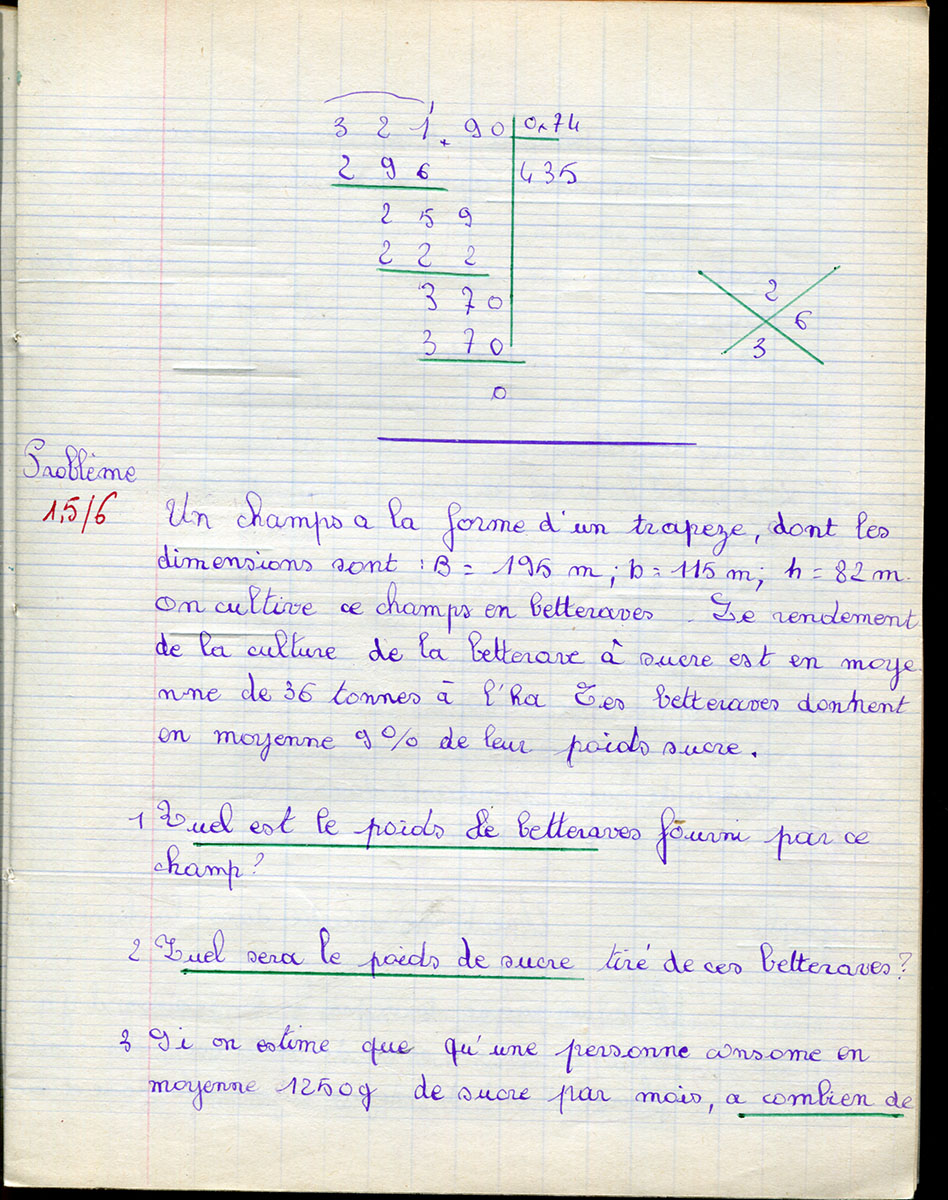 3 2 1, 90 0,74
2 9 6 435
2 5 9
2 2 2
3 7 0
3 7 0
0
2
6
3
Problème
1,5/6
Un champs a la forme d'un trapeze, dont les
dimensions sont : B = 195 m ; b = 115 m ; h = 82 m.
On cultive ce champs en betteraves. Le rendement
de la culture de la betterave à sucre est en moye
nne de 36 tonnes à l'ha Les betteraves donnent
en moyenne 9 % de leur poids sucre.
1 Quel est le poids de betteraves fourni par ce
champ?
2 Quel sera le poids de sucre tiré de ces betteraves?
3 Si on estime que qu'une personne consome en
moyenne 1250g de sucre par mois, a combien de